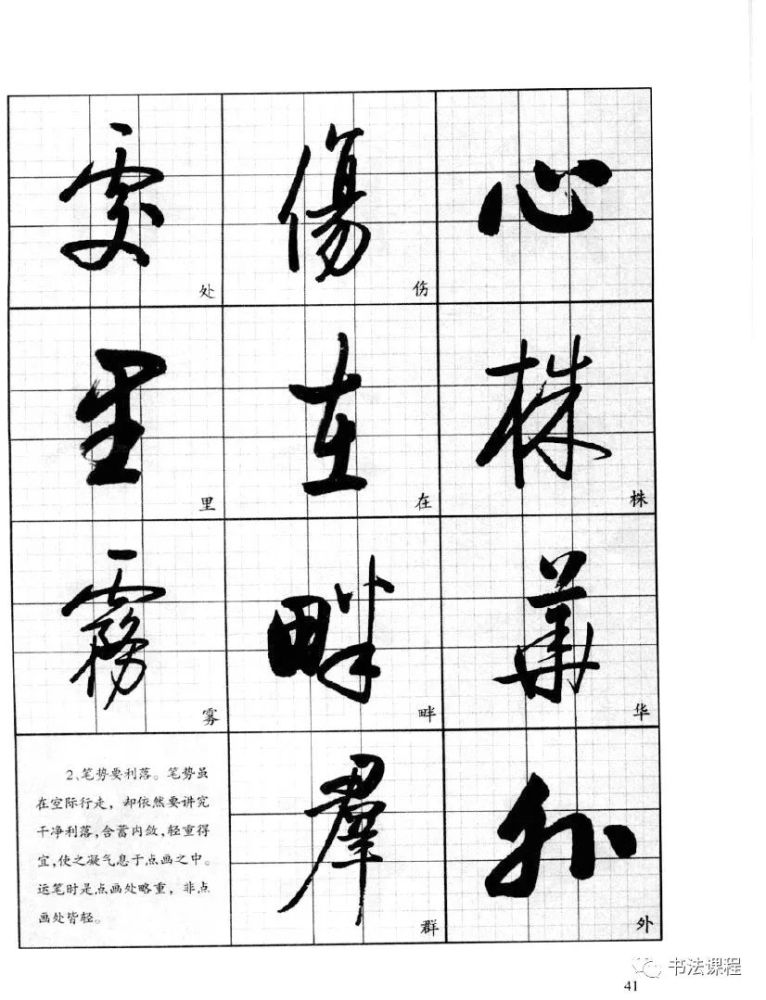 心
株
株
華
华
外
外
傷
伤
在
在
畔
畔
羣
群
處
处
里
里
霧
雾
2、笔势要利落。笔势虽
在空际行走，却依然要讲究
干净利落,含蓄内敛,轻重得
宜,使之凝气息于点画之中。
运笔时是点画处略重，非点
画处皆轻。
书法课程
41